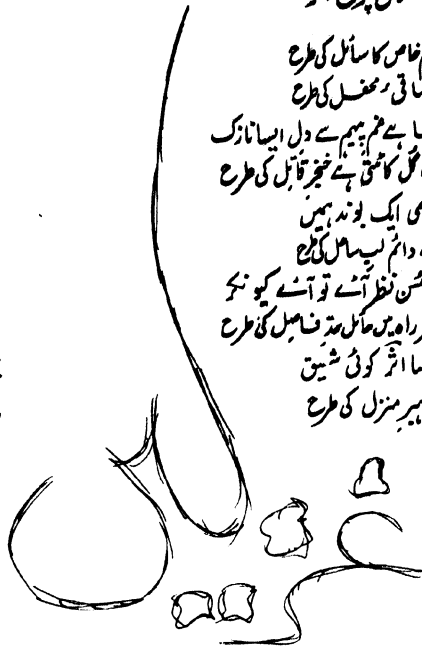 خاص کا سائل کی طرح
ساقیٔ محفل کی طرح
ہے غم پیہم سے دل ایسا نازک
گل کاٹتی ہے خنجر قاتل کی طرح
ایک بوند ہمیں
دائم لب ساحل کی طرح
نظر آئے تو آئے کیونکر
راہ میں حائل حد فاصل کی طرح
اثر کوئی شیق
منزل کی طرح